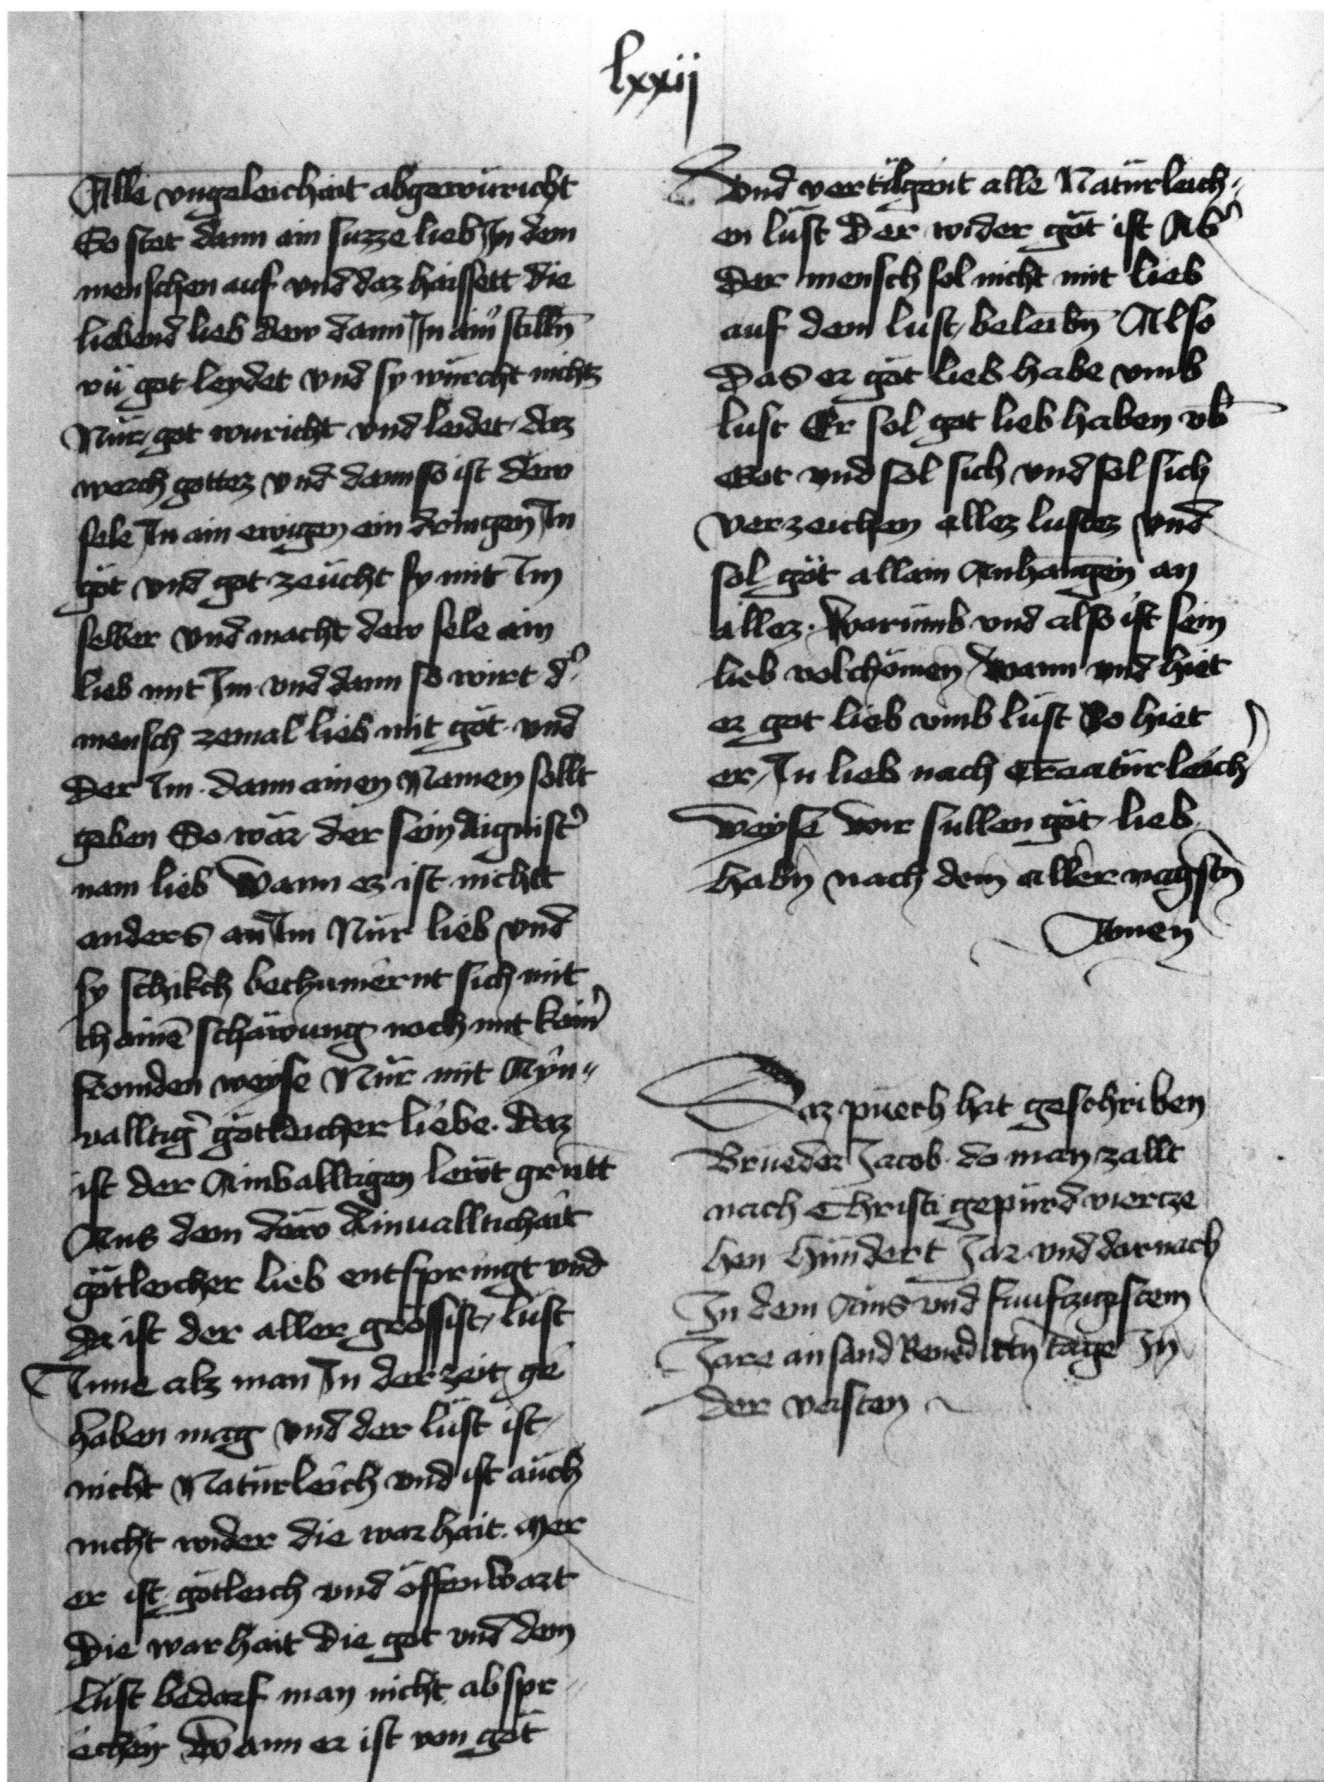 lxxij
Alle vngeleichait abgewüricht
So stet dann ain suzze lieb In dem
menschen auf vnd daz haissett die
liebend lieb dew dann In ainr stilln
rü got leydet vnd sy würcht nichtz
Nür got wuricht vnd leidet daz
werch gottez vnd dann so ist dew
sele In ain ewigen ein dringen In
göt vnd got zeücht sy mit Im
selber vnd macht dew sele ain
lieb mit Im vnd dann so wirt d'
mensch zemal lieb mit göt vnd
Der Im dann ainen Namen sollt
geben So wär der sein Aignist'
nam lieb Wann ez ist nichtt
anders an Im Nür lieb vnd
sy schikch bechumernt sich mit
chainē schäwung noch mit kain'
fromden weyse Nür mit Ayn-
valltig' götleicher liebe. Daz
ist der Ainvalltigen lewt grūtt
Aus dem däw Ainualltichait
götleicher lieb entspringt vnd
da ist der aller grössist lust
Inne alz man In der zeit ge
haben mag vnd der lüst ist
nicht Natürleich vnd ist aüch
nicht wider die warhait. Mer
er ist götleich vnd öffenwart
Die warhait Die got vnd dem
lüst bedarf man nicht abspr-
echen Wann er ist von göt
Vnd vertilgent alle Natürleich-
en lüst Der wider göt ist Ab'
Der mensch sol nicht mit lieb
auf dem lust beleibn Also
Das er göt lieb habe vmb
lust Er sol got lieb haben vb
Got vnd sol sich vnd sol sich
Verzeichen allez lustez vnd
sol göt allain Anhangen an
allez warümb vnd also ist sein
lieb volchömen wann vnd hiet
er got lieb vmb lüst So hiet
er In lieb nach Creatürleich
weyse Wir sullen göt lieb
habn nach dem aller nagstn
Amen
Daz püech hat geschriben
Brüeder Jacob do man zallt
nach Christi gepürd viertze
hen Hündert Jar vnd darnach
In dem Ains vnd funfczigistem
Jare an sand Benedictn tage In
der vasten